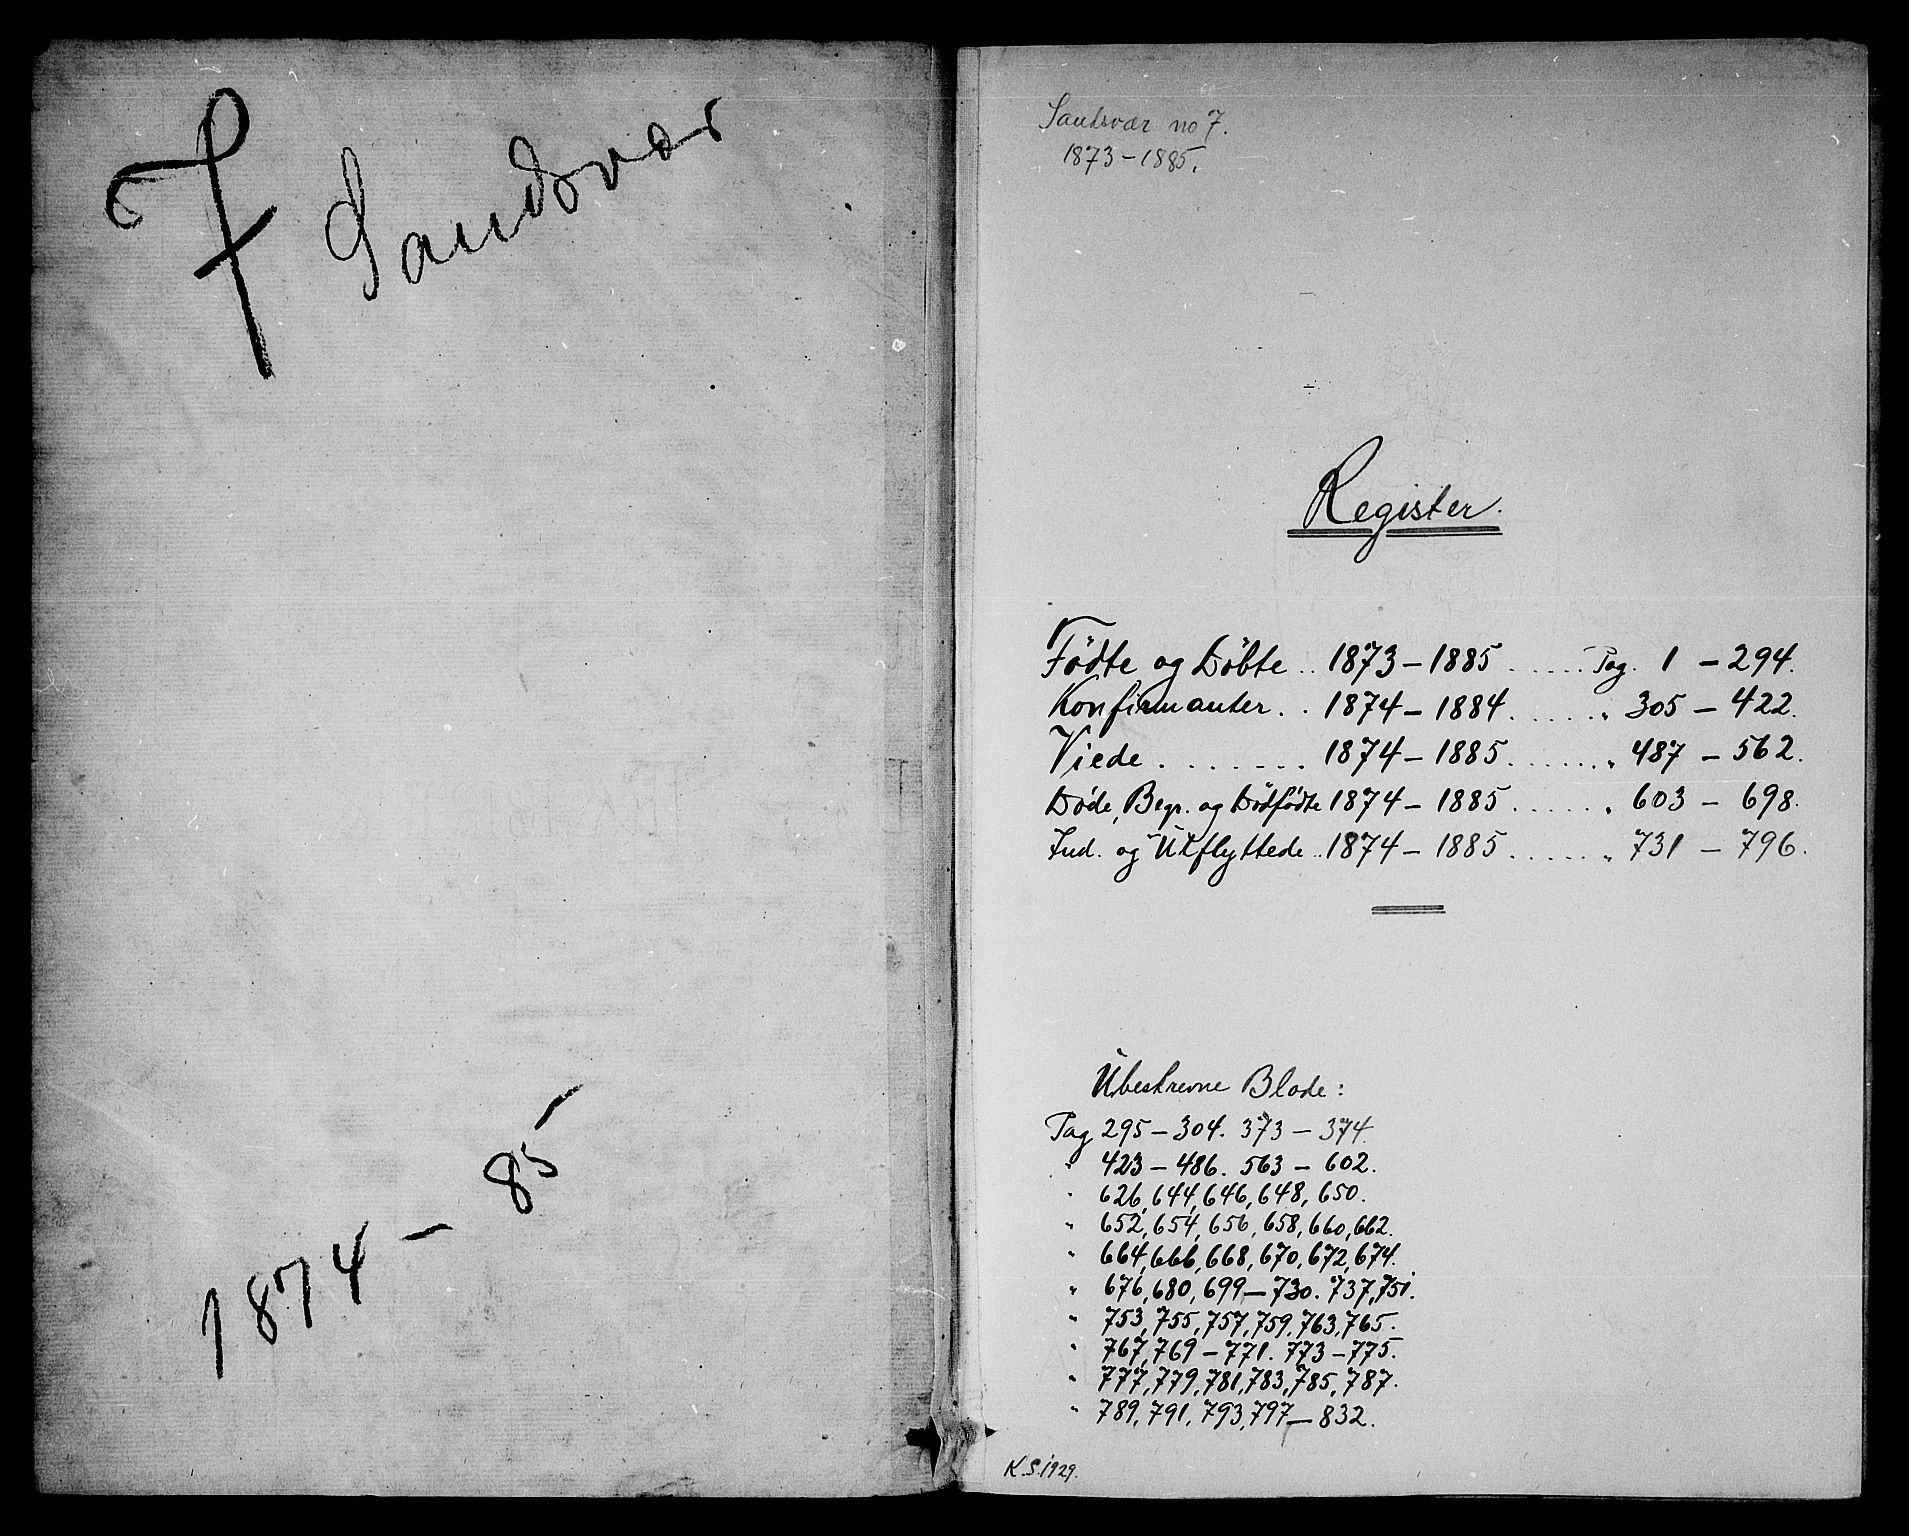 7 Sandsvær
1874 – 85
Sandsvær no 7.
1873 – 1885.
Register.
Födte og Döbte .. 1873 – 1885 ..... Pag. 1 – 294.
Konfirmanter. . 1874 – 1884. ..... „ 305 – 422.
Viede . . . . . . . 1874 – 1885. ..... „ 487 – 562.
Döde, Begr. og Dödfödte 1874 – 1885 ..... „ 603 – 698.
Ind. og Utflyttede .. 1874 – 1885 ..... „ 731 – 796.
Ubeskrevne Blade:
Pag 295 – 304. 373 – 374.
„ 423 – 486. 563 – 602.
„ 626, 644, 646, 648, 650.
„ 652, 654, 656, 658, 660, 662.
„ 664, 666, 668, 670, 672, 674.
„ 676, 680, 699 – 730. 737, 751.
„ 753, 755, 757, 759, 763, 765.
„ 767, 769 – 771. 773 – 775.
„ 777, 779, 781, 783, 785, 787.
„ 789, 791, 793, 797 – 832.
K.S. 1929.